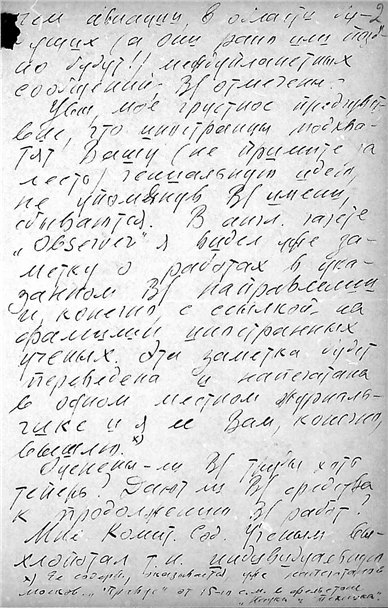 чем авиации, в области бу-
дущих (а они рано или позд-
но будут!) межпланетных
сообщений. В/ отмечены.
Увы, мое грустное предчувст-
вие, что иностранцы подхва-
тят Вашу (не примите за
лесть) гениальную идею,
не упомянув В/ имени,
сбывается. В англ. газете
"Observer" я видел уже за-
метку о работах в ука-
занном В/ направлении
и, конечно, с ссылкой на
фамилии иностранных
ученых. Эта заметка будет
переведена и напечатана
в одном местном журналь-
чике и я ее Вам, конечно,
вышлю. х)
Оценены-ли В/ труды хоть
теперь? Дают ли В/ средства
к продолжению В/ работ?
Мне Комит. Сод. Ученым вы-
хлопотал т.н. индивидуальную
х) Ее содерж., оказывается, уже напечатано в
москов. "Правде" от 15-го с.м. в
"Наука и техника".